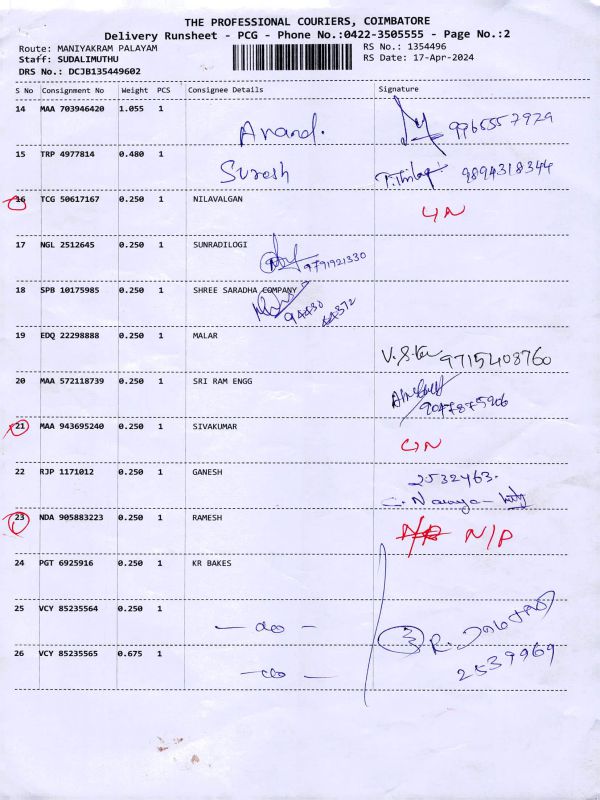 THE PROFESSIONAL COURIERS, COIMBATORE
Delivery Runsheet - PCG - Phone No.:0422-3505555 - Page No.:2
Route: MANIYAKRAM PALAYAM
RS No.: 1354496
Staff: SUDALIMUTHU
RS Date: 17-Apr-2024
DRS No.: DCJB135449602
S No Consignment No Weight PCS Consignee Details Signature
14 MAA 703946420 1.055 1 Anand. 9965557929
15 TRP 4977814 0.480 1 Suresh 9894318344
16 TCG 50617167 0.250 1 NILAVALGAN
17 NGL 2512645 0.250 1 SUNRADILOGI
9791921330
18 SPB 10175985 0.250 1 SHREE SARADHA COMPANY
94430
44372
19 EDQ 22298888 0.250 1 MALAR
9715408760
20 MAA 572118739 0.250 1 SRI RAM ENGG
21 MAA 943695240 0.250 1 SIVAKUMAR
22 RJP 1171012 0.250 1 GANESH 2532463.
23 NDA 905883223 0.250 1 RAMESH N/P
24 PGT 6925916 0.250 1 KR BAKES
25 VCY 85235564 0.250 1 - do -
26 VCY 85235565 0.675 1 - do - 2539969